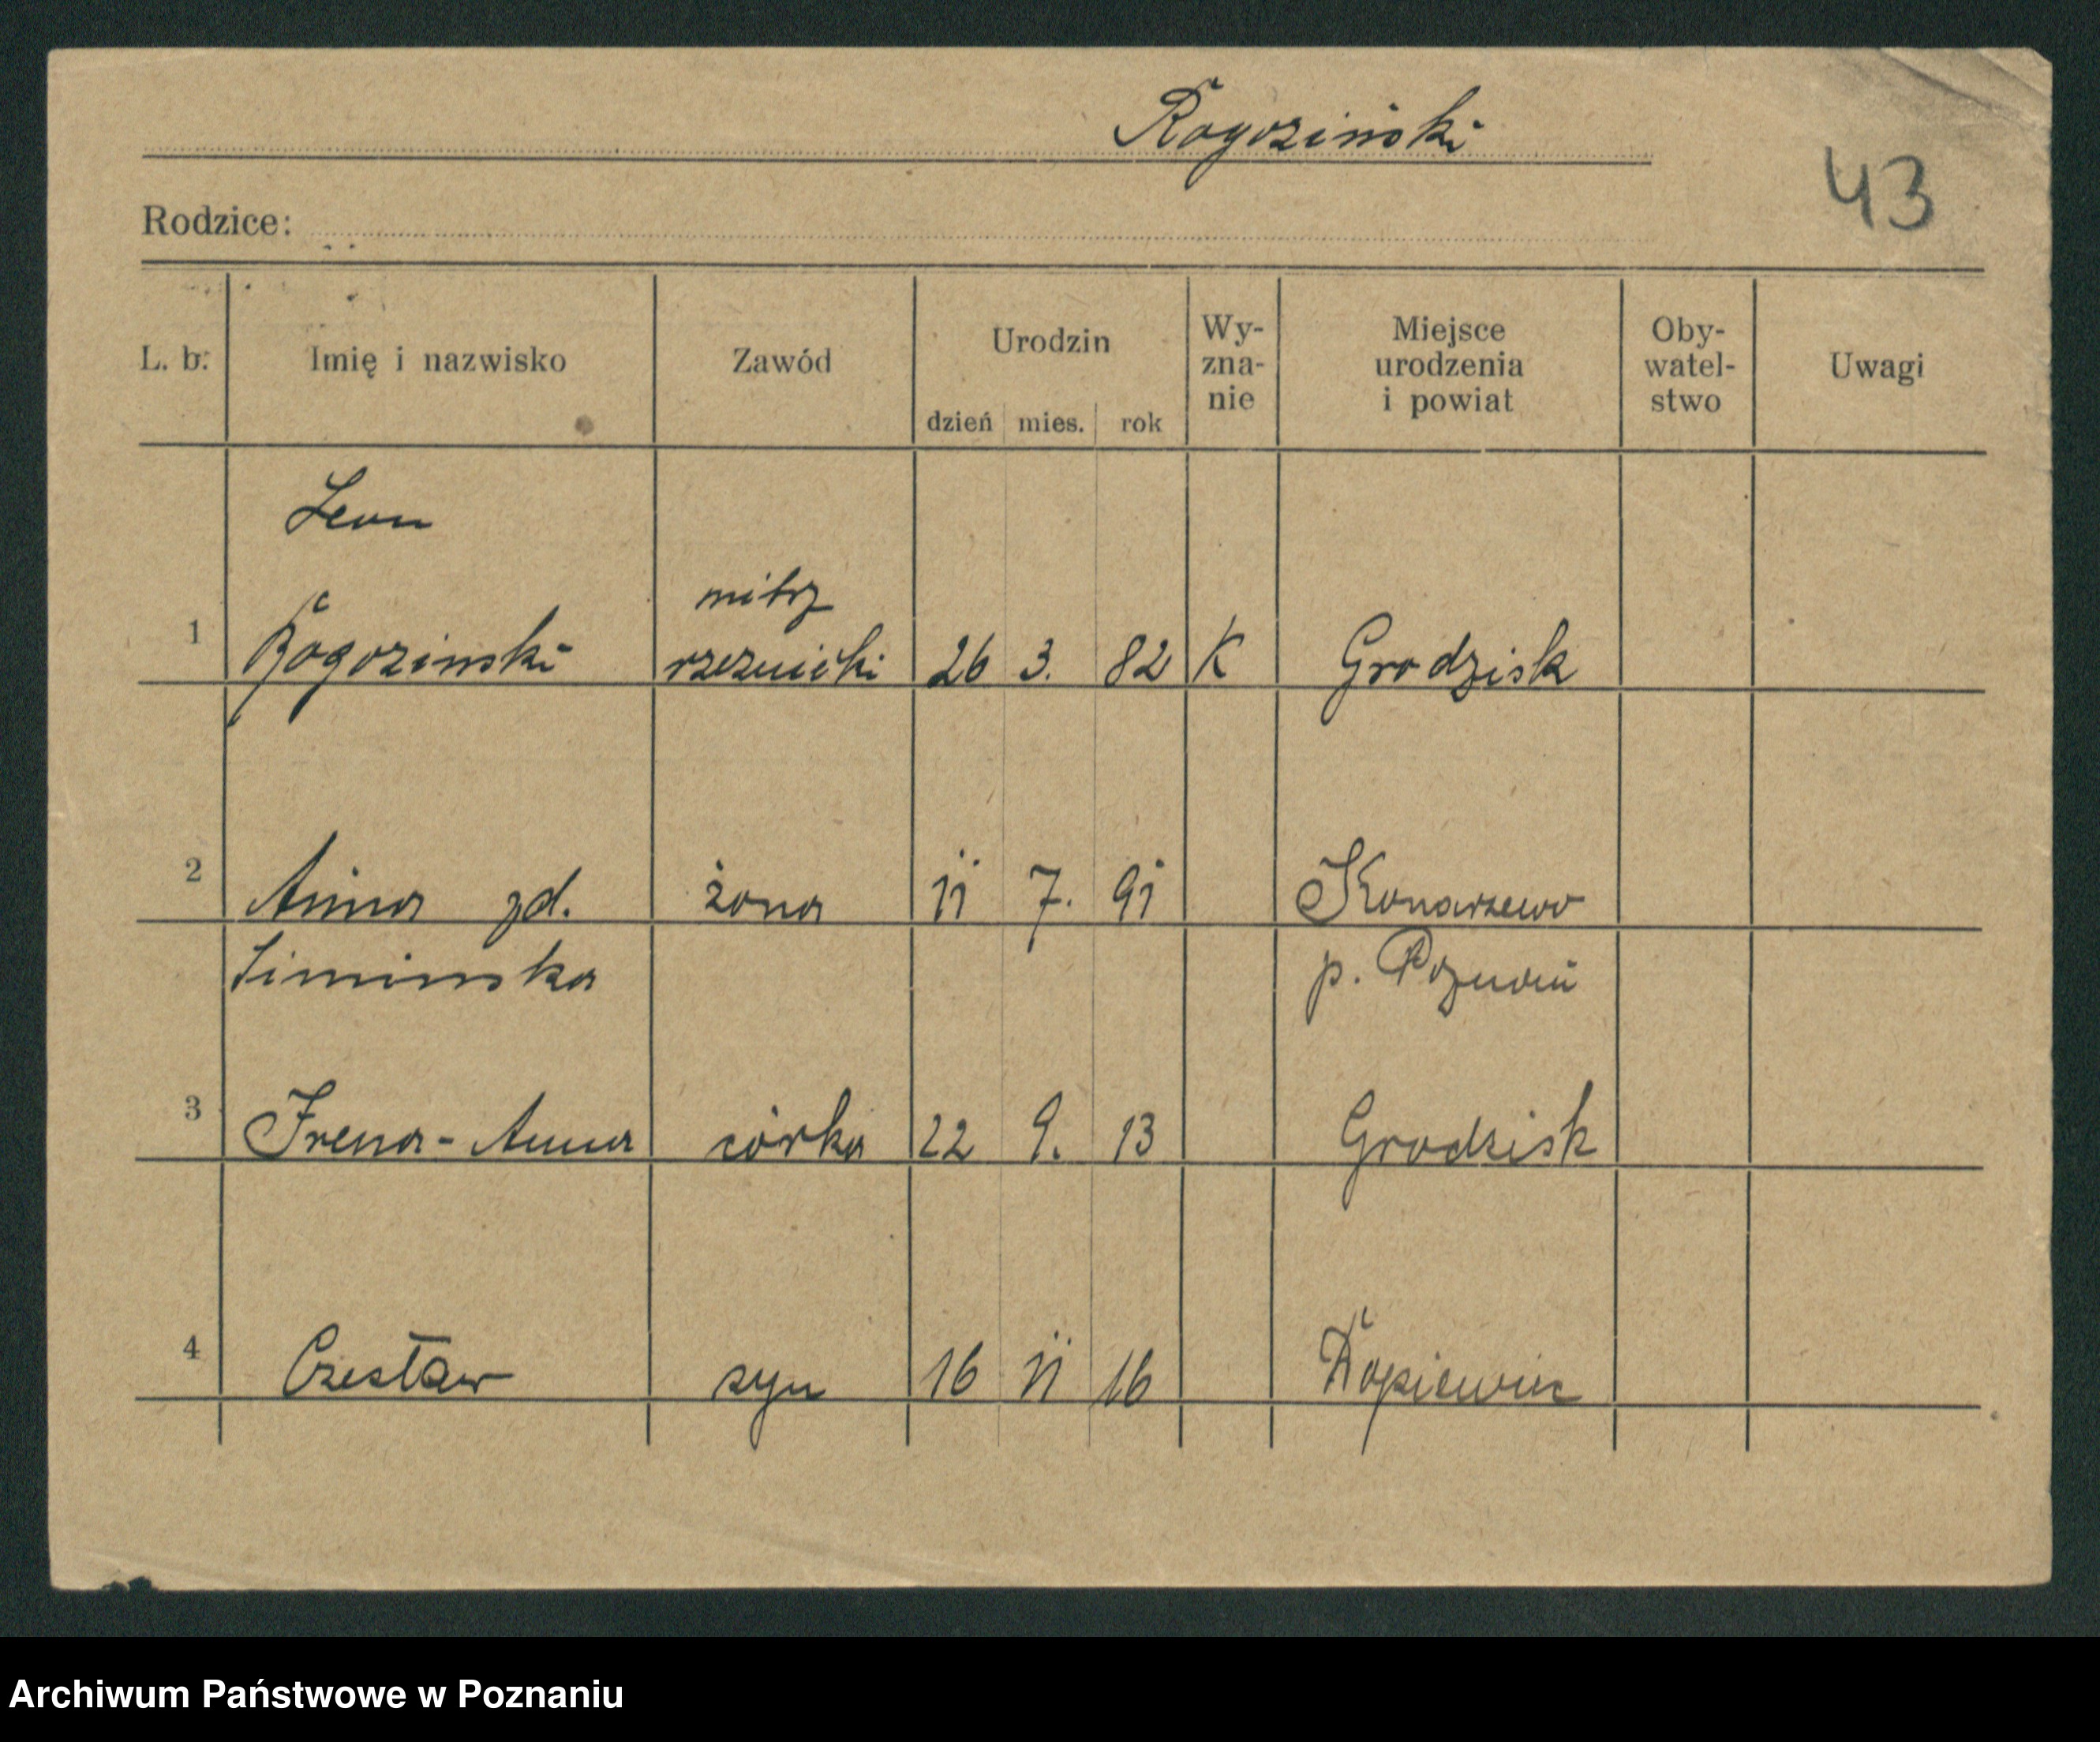 Rogoziński
43
Rodzice:
L. b. Imię i nazwisko Zawód Urodzin dzień mies. rok Wy-zna-nie Miejsce urodzenia i powiat Oby-watel-stwo Uwagi
Leon
mistrz
1 Rogozinski rzeznicki 26 3. 82 K Grodzisk
2 Anna zd. żona 11 7. 91 Konarzewo
Siminska p. Poznań
3 Irena-Anna córka 22 9. 13 Grodzisk
4 Czesław syn 16 11 16
Archiwum Państwowe w Poznaniu